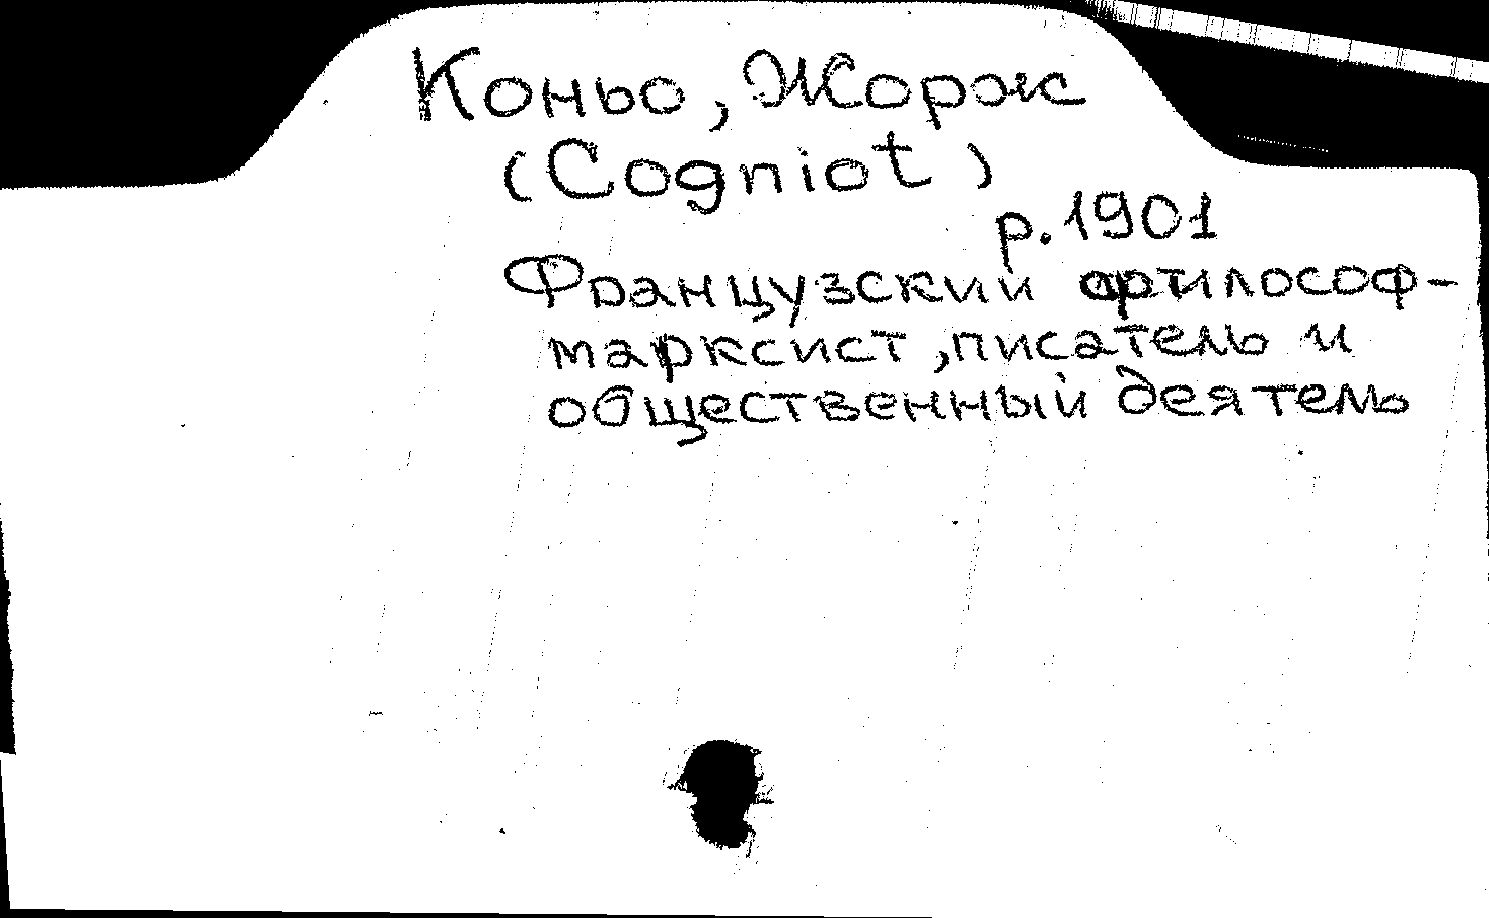 Коньо, Жорж
(Cogniot)
р. 1901
Французский философ-
марксист, писатель и
общественный деятель